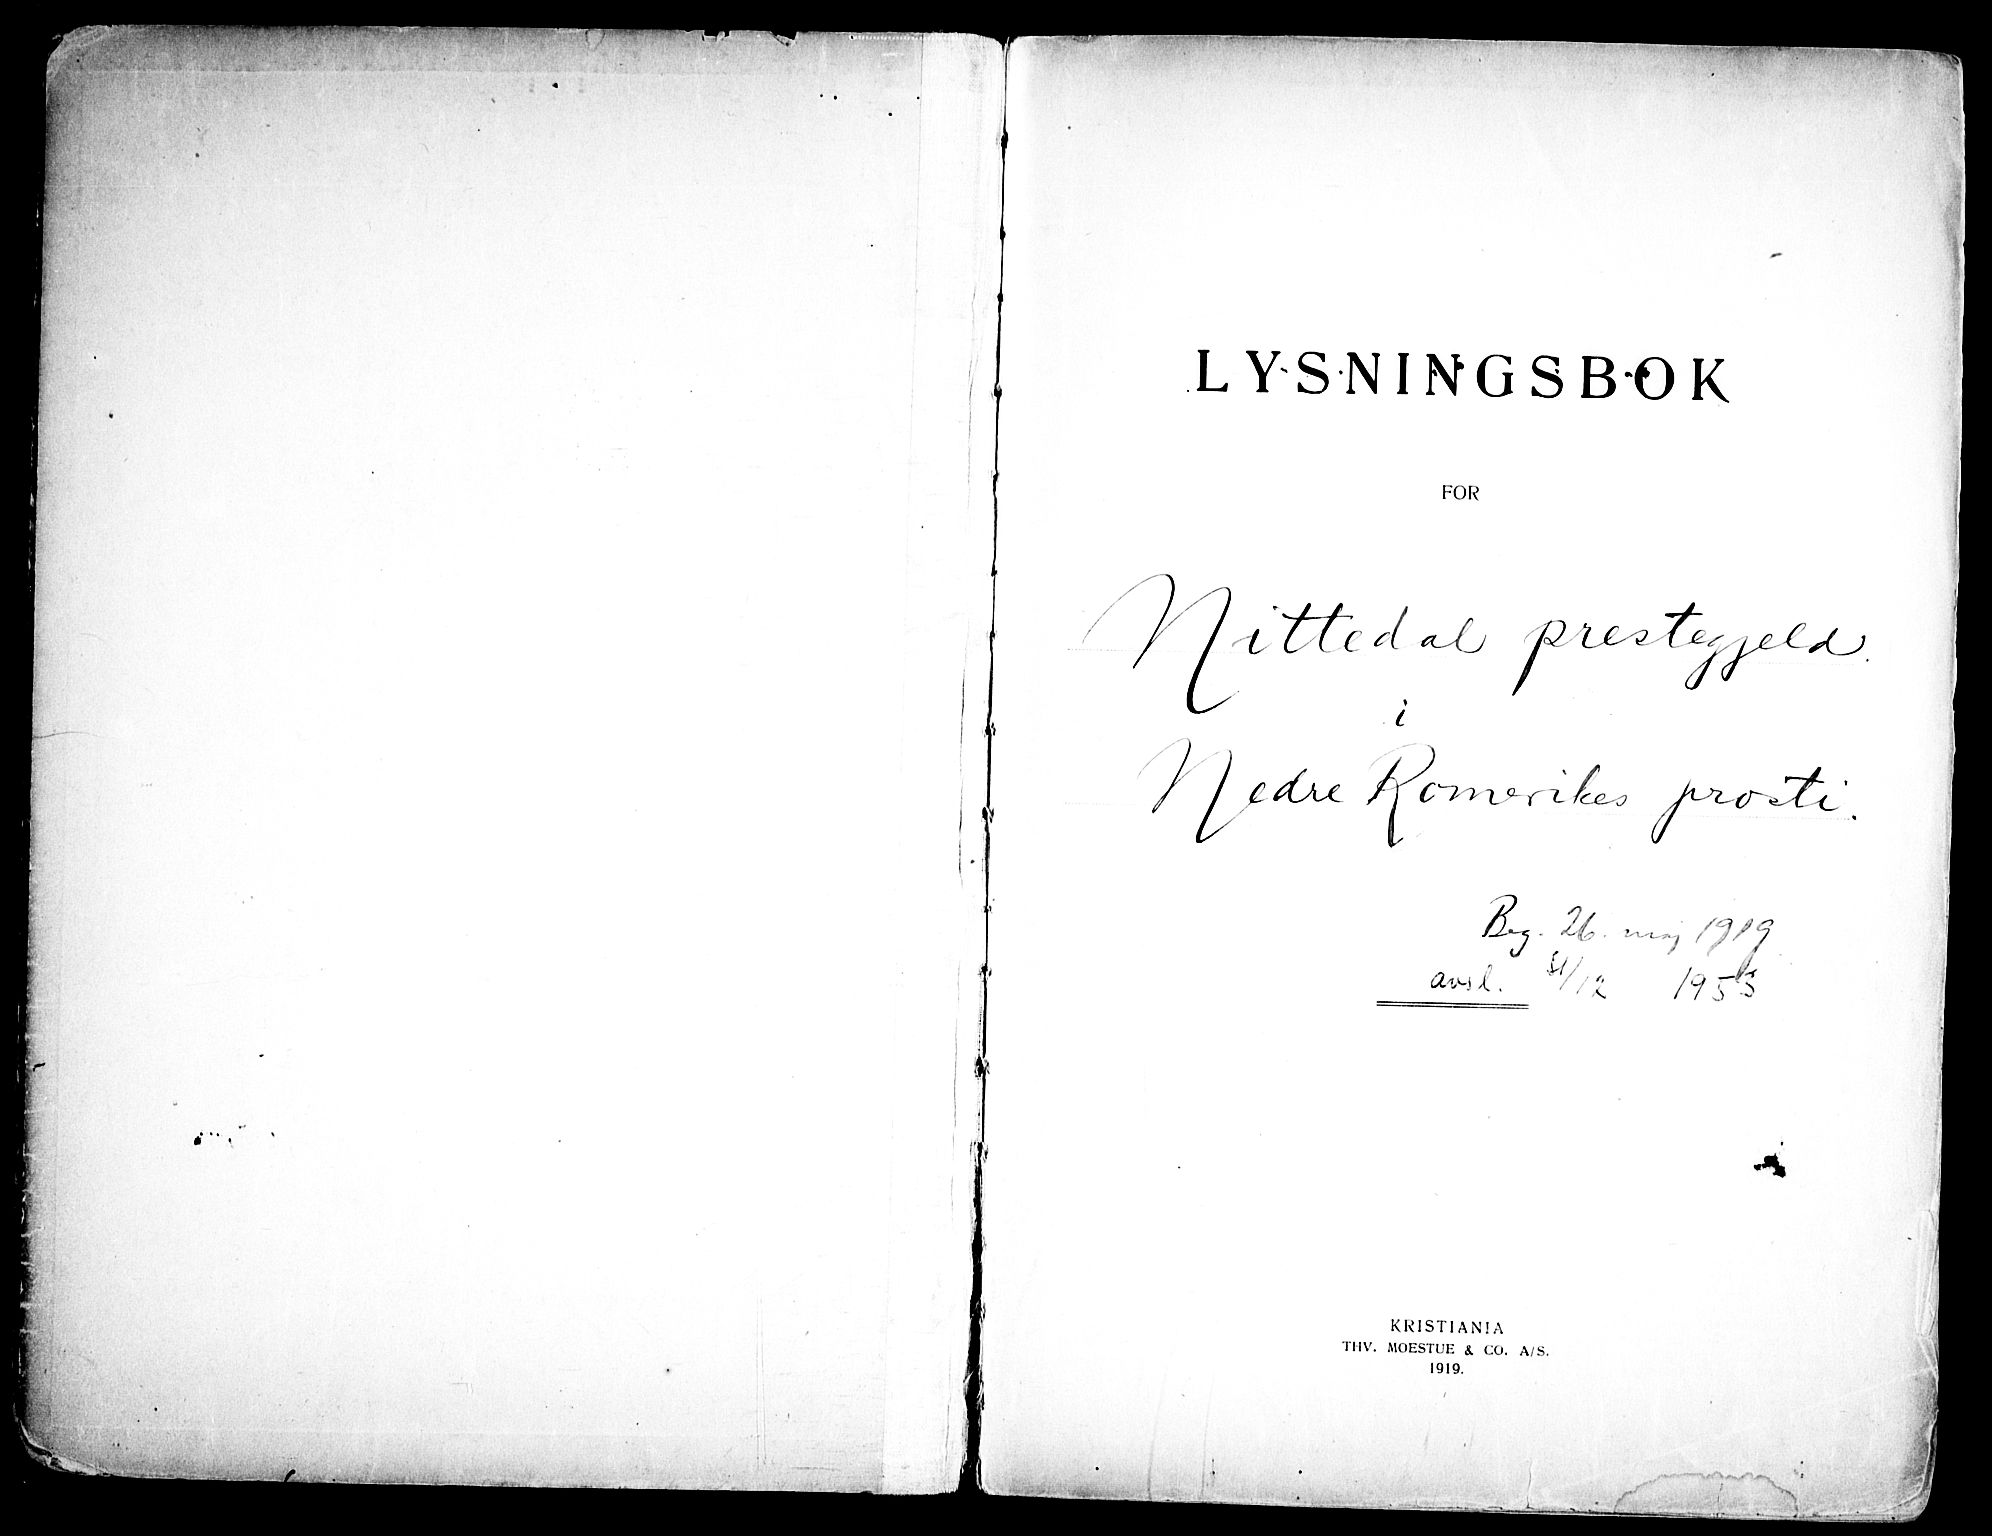 LYSNINGSBOK
FOR
Nittedal prestegjeld.
i
Nedre Romerikes prosti.
Beg. 26. maj 1919
avsl. 31/12 1955
KRISTIANIA
THV. MOESTUE & CO. A/S.
1919.